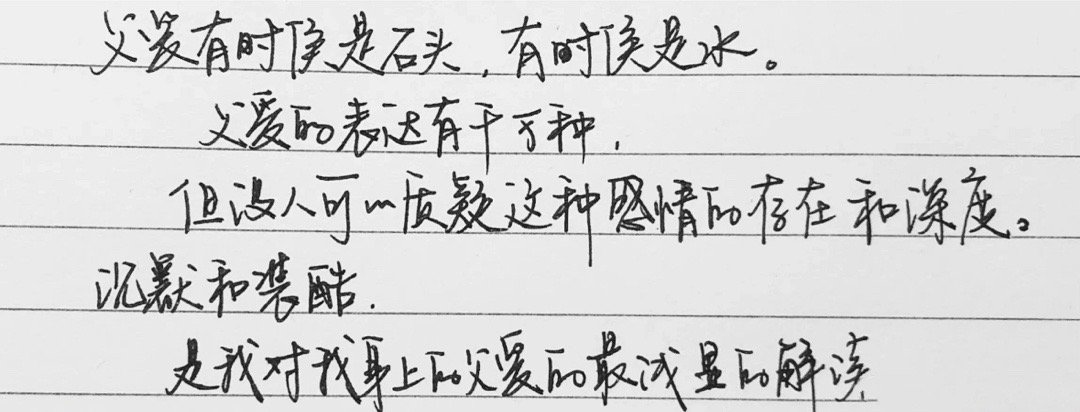 父爱有时候是石头，有时候是水。
父爱的表达有千万种，
但没人可以质疑这种感情的存在和深度。
沉默和装酷，
是我对我身上的父爱的最浅显的解读